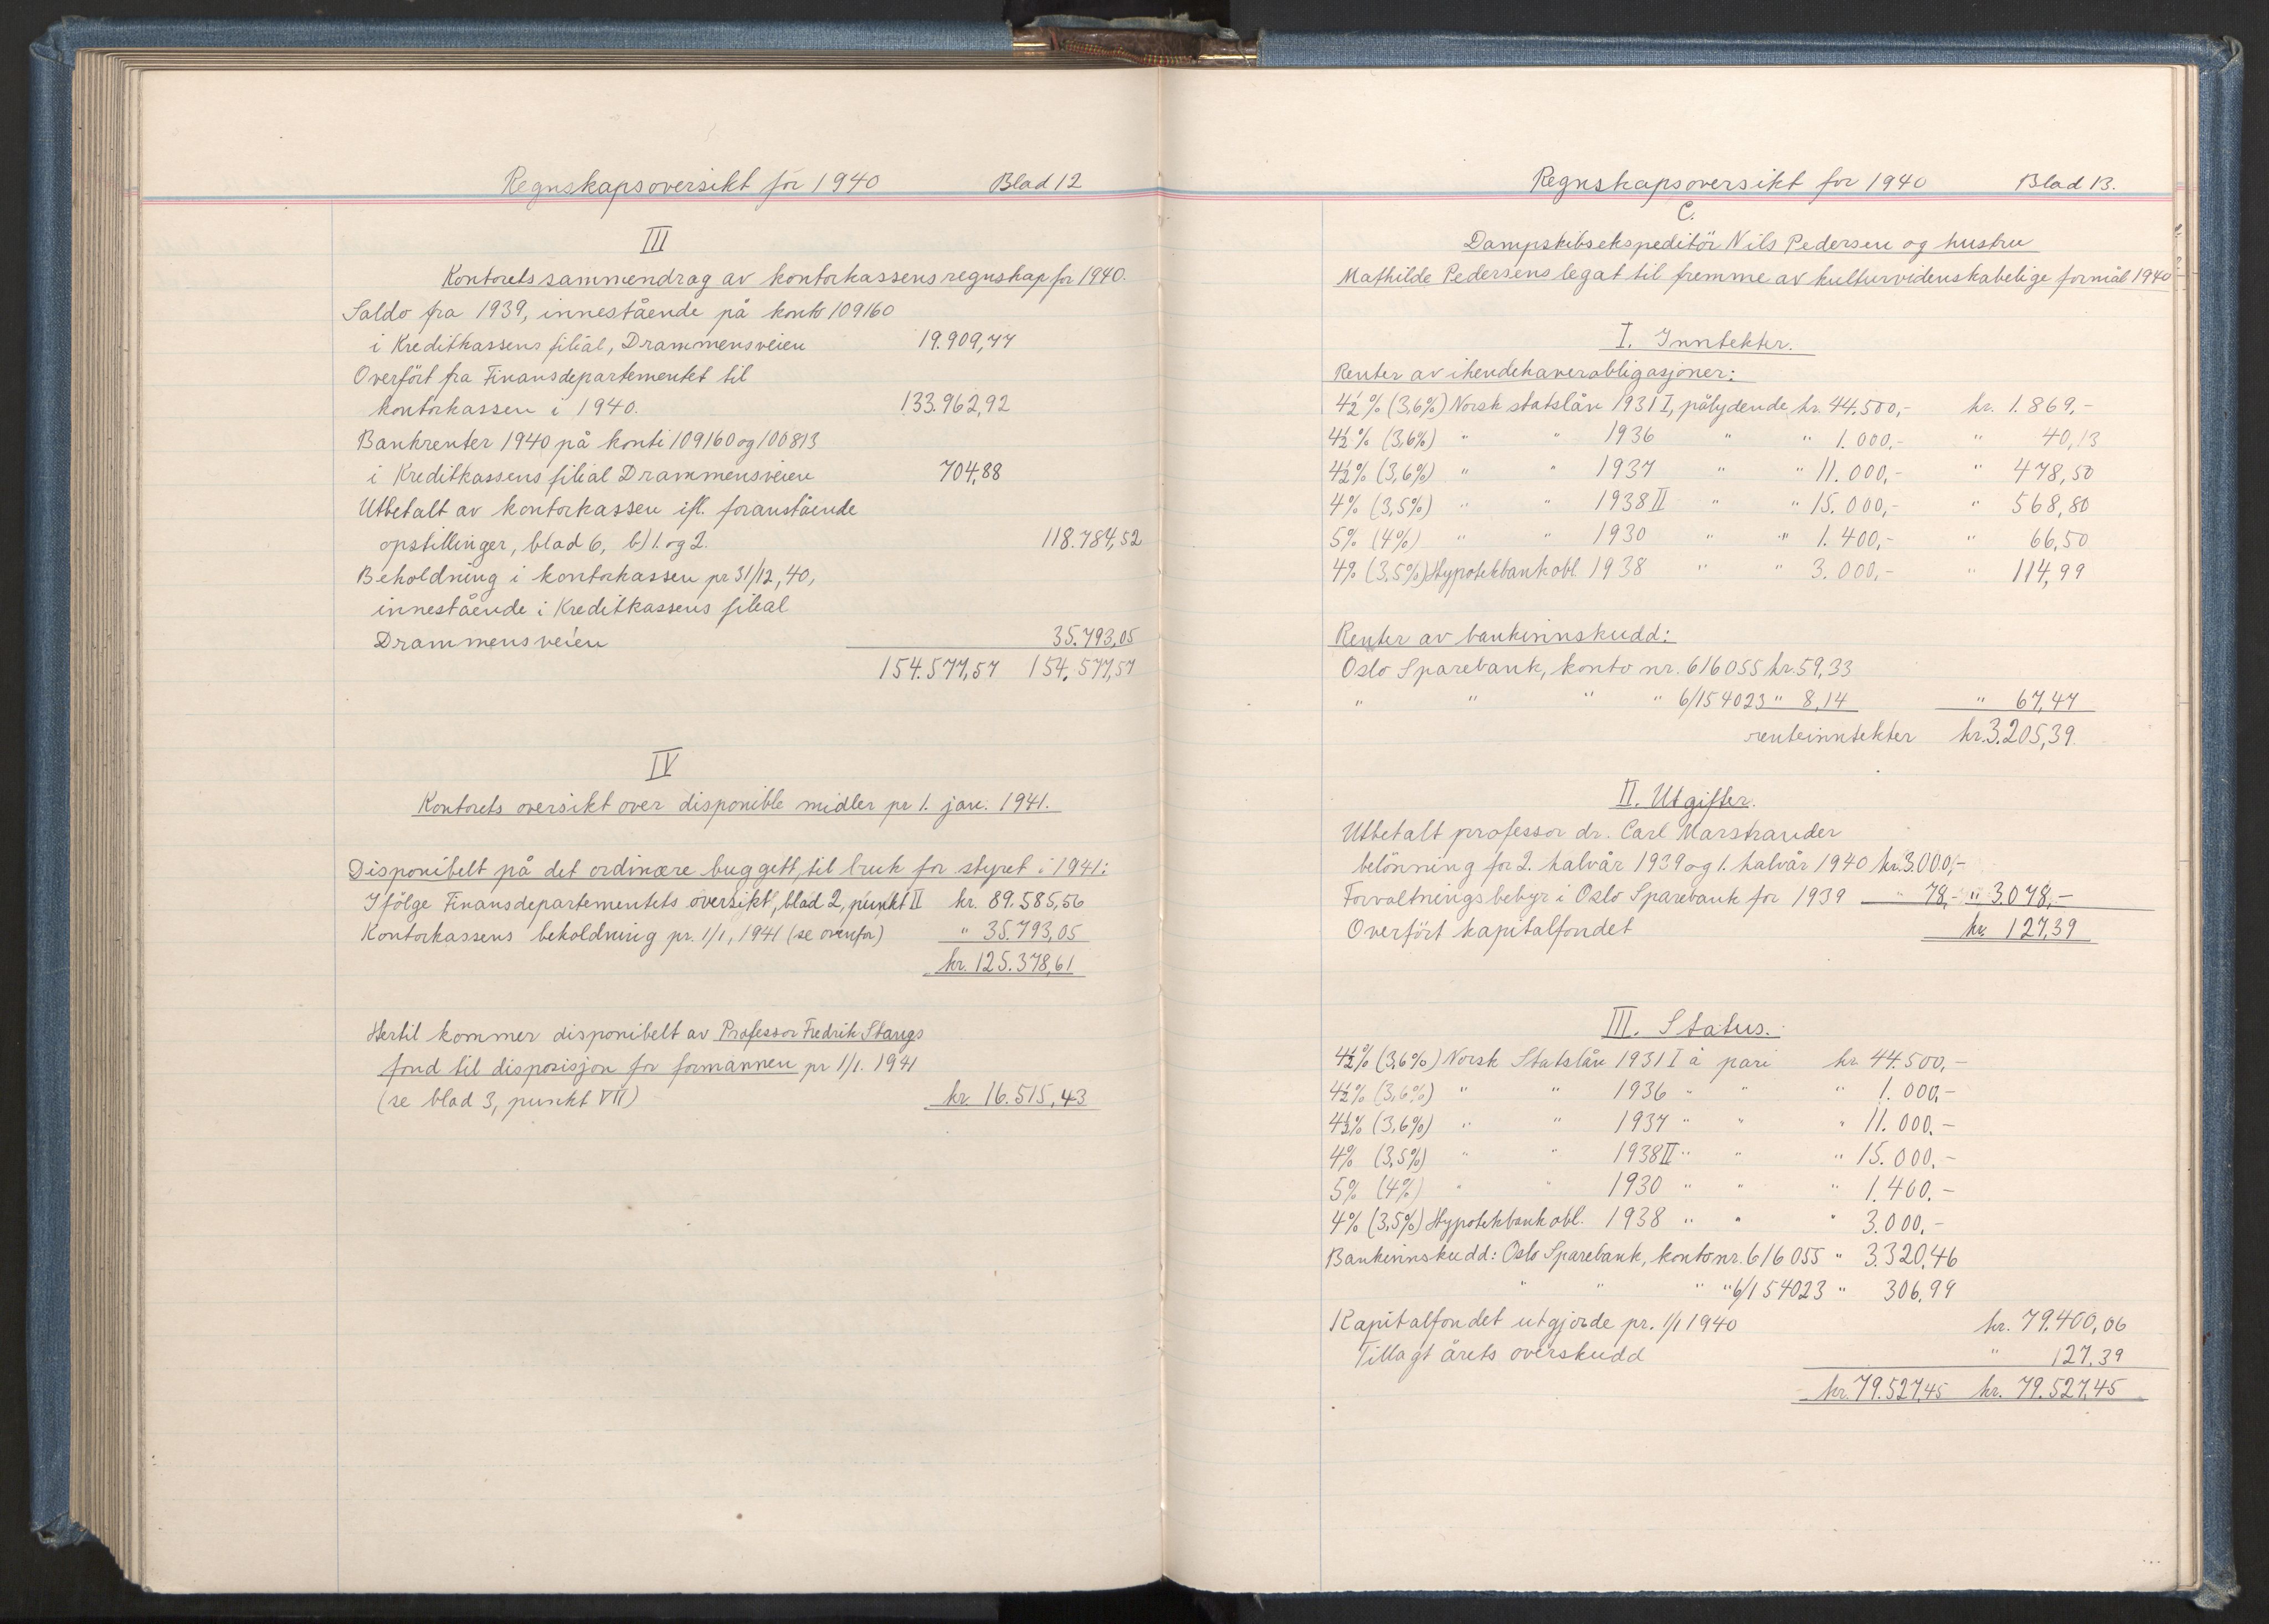 Regnskapsoversikt for 1940 Blad 12
III
Kontorets sammendrag av kontorkassens regnskap for 1940.
Saldo fra 1939, innestående på konto 109160
i Kreditkassens filial, Drammensveien 19.909,77
Overfört fra Finansdepartementet til
kontorkassen i 1940. 133.962,92
Bankrenter 1940 på konti 109160 og 100813
i Kreditkassens filial Drammensveien 704,88
Utbetalt av kontorkassen ifl. foranstående
opstillinger, blad 6, b) 1. og 2. 118.784,52
Beholdning i kontorkassen pr 31/12, 40,
innestående i Kreditkassens filial
Drammensveien 35.793,05
154.577,57 154.577,57
IV
Kontorets oversikt over disponible midler pr 1. jan. 1941.
Disponibelt på det ordinære buggett, til bruk for styret i 1941:
Ifölge Finansdepartementets oversikt, blad 2, punkt II kr. 89.585,56
Kontorkassens beholdning pr. 1/1, 1941 (se ovenfor) " 35.793,05
kr. 125.378,61
Hertil kommer disponibelt av Professor Fredrik Stangs
fond til disposisjon for formannen pr 1/1. 1941
(se blad 3, punkt VII) kr. 16.515,43
Regnskapsoversikt for 1940 Blad 13.
C.
Dampskibsekspeditör Nils Pedersen og hustru
Mathilde Pedersens legat til fremme av kulturvidenskabelige formål 1940
I. Inntekter.
Renter av ihendehaverobligasjoner:
4½% (3,6%) Norsk statslån 1931 I, pålydende kr. 44.500,- kr. 1.869,-
4½% (3,6%) " " 1936 " " 1.000,- " 40,13
4½% (3,6%) " " 1937 " " 11.000,- " 478,50
4% (3,5%) " " 1938 II " " 15.000,- " 568,80
5% (4%) " " 1930 " " 1.400,- " 66,50
4% (3,5%) Hypotekbankobl. 1938 " " 3.000,- " 114,99
Renter av bankinnskudd:
Oslo Sparebank, konto nr. 616055 kr. 59,33
" " " 6/154023 " 8,14 " 67,47
renteinntekter kr. 3.205,39
II. Utgifter.
Utbetalt professor dr. Carl Marstrander
belönning for 2. halvår 1939 og 1. halvår 1940 kr. 3.000,-
Forvaltningsbebyr i Oslo Sparebank for 1939 " 78,- " 3.078,-
Overfört kapitalfondet kr. 127,39
III. Status.
4½% (3,6%) Norsk Statslån 1931 I à pari kr. 44.500,-
4½% (3,6%) " " 1936 " " " 1.000,-
4½% (3,6%) " " 1937 " " " 11.000.-
4% (3,5%) " " 1938 II " " " 15.000.-
5% (4%) " " 1930 " " " 1.400.-
4% (3,5%) Hypotekbankobl. 1938 " " " 3.000,-
Bankinnskudd: Oslo Sparebank, konto nr. 616055 " 3.320,46
" " " " 6/154023 " 306,99
Kapitalfondet utgjorde pr. 1/1 1940 kr. 79.400,06
Tillagt årets overskudd " 127,39
kr. 79.527,45 kr. 79.527,45